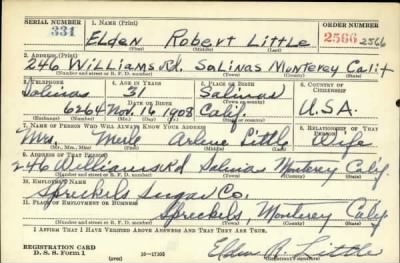 SERIAL NUMBER 1. NAME (Print) ORDER NUMBER
331 Elden Robert Little 2566 2566
(First) (Middle) (Last)
2. ADDRESS (Print)
246 Williams Rd. Salinas Monterey Calif
(Number and street or R. F. D. number) (Town) (County) (State)
3. TELEPHONE 4. AGE IN YEARS 5. PLACE OF BIRTH 6. COUNTRY OF CITIZENSHIP
Salinas 31 Salinas
DATE OF BIRTH (Town or county)
6264 Nov. 16 1908 Calif U.S.A.
(Exchange) (Number) (Mo.) (Day) (Yr.) (State or country)
7. NAME OF PERSON WHO WILL ALWAYS KNOW YOUR ADDRESS 8. RELATIONSHIP OF THAT PERSON
Mrs Merle Arlene Little Wife
(Mr., Mrs., Miss) (First) (Middle) (Last)
9. ADDRESS OF THAT PERSON
246 Williams Rd Salinas Monterey Calif
(Number and street or R. F. D. number) (Town) (County) (State)
10. EMPLOYER'S NAME
Spreckels Sugar Co.
11. PLACE OF EMPLOYMENT OR BUSINESS
Spreckels, Monterey Calif
(Number and street or R. F. D. number) (Town) (County) (State)
I AFFIRM THAT I HAVE VERIFIED ABOVE ANSWERS AND THAT THEY ARE TRUE.
REGISTRATION CARD
D. S. S. Form 1 16—17105 Elden R. Little